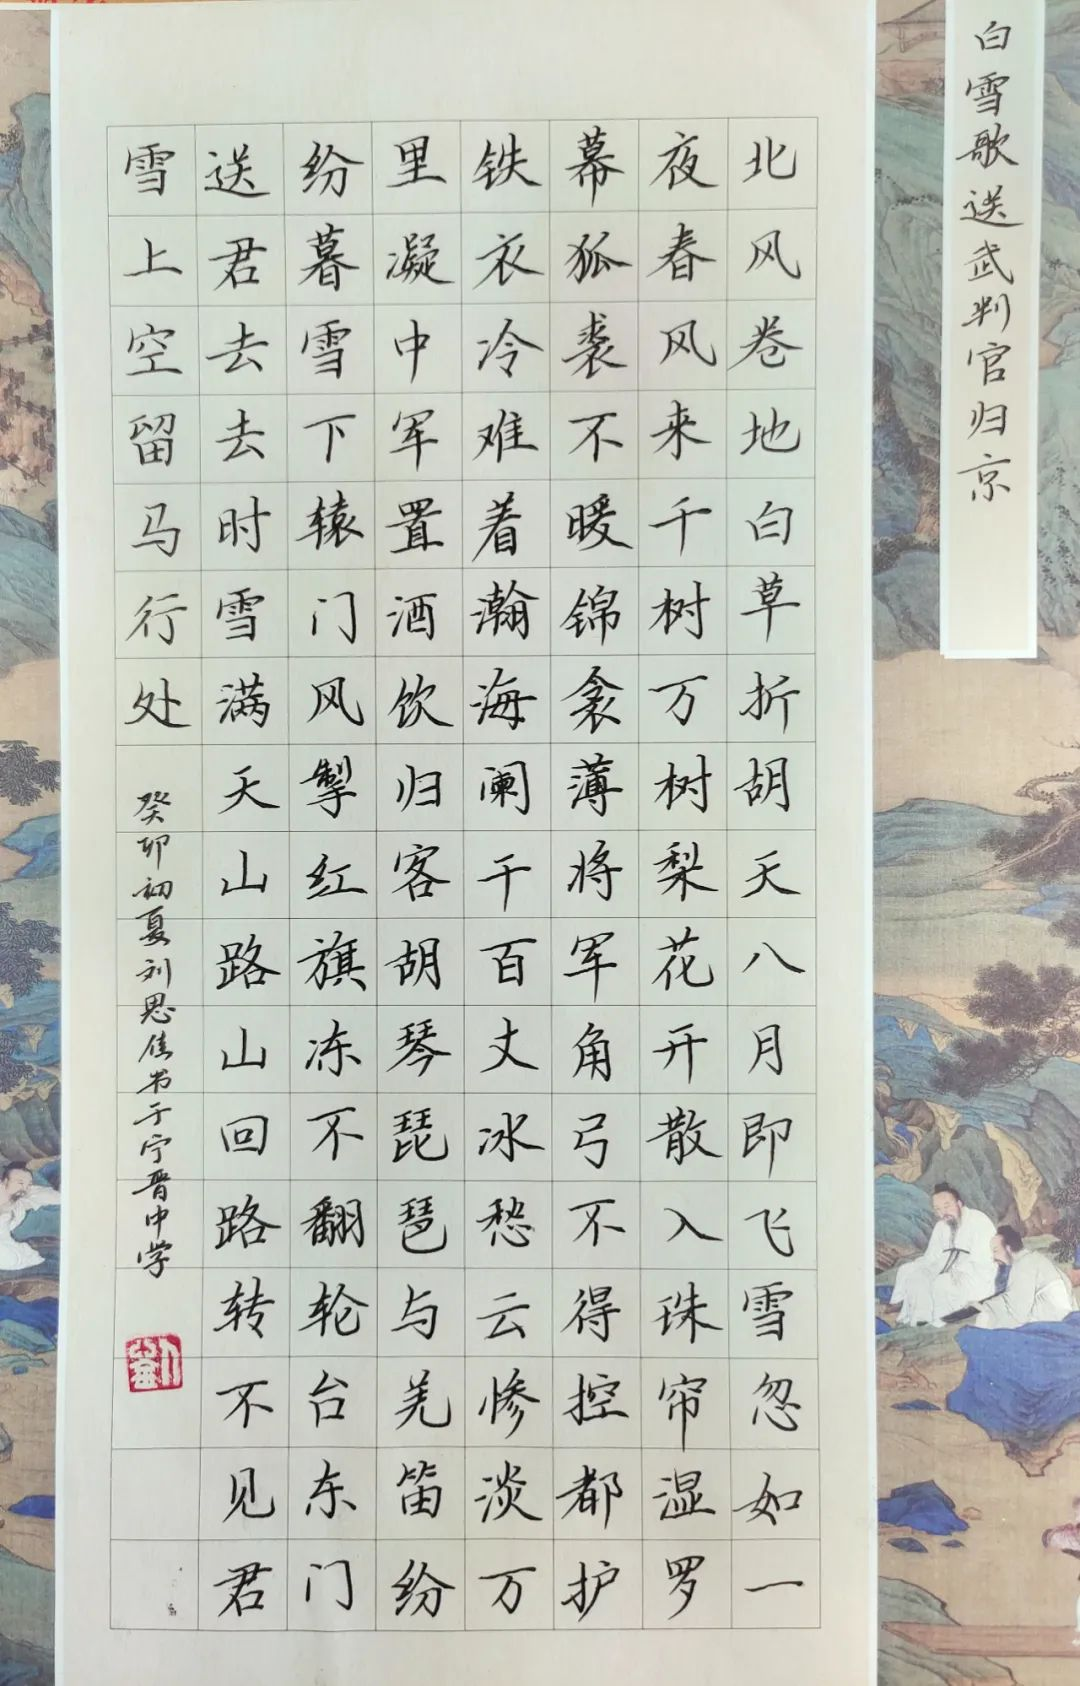 白雪歌送武判官归京
北风卷地白草折胡天八月即飞雪忽如一
夜春风来千树万树梨花开散入珠帘湿罗
幕狐裘不暖锦衾薄将军角弓不得控都护
铁衣冷难着瀚海阑干百丈冰愁云惨淡万
里凝中军置酒饮归客胡琴琵琶与羌笛纷
纷暮雪下辕门风掣红旗冻不翻轮台东门
送君去去时雪满天山路山回路转不见君
雪上空留马行处
癸卯初夏刘思佳书于宁晋中学